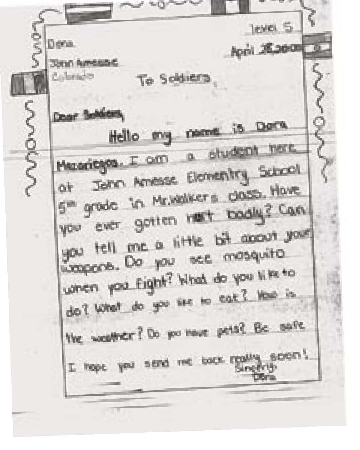 level 5
Dora
April 28, 2000
John Amesse
Colorado
To Soldiers,
Dear Soldiers,
Hello my name is Dora
Mazariegos. I am a student here
at John Amesse Elementry School
5th grade in Mr.Walkers class. Have
you ever gotten hurt badly? Can
you tell me a little bit about your
weapons. Do you see mosquito
when you fight? What do you like to
do? What do you like to eat? How is
the weather? Do you have pets? Be safe
I hope you send me back really soon!
Sincerly,
Dora